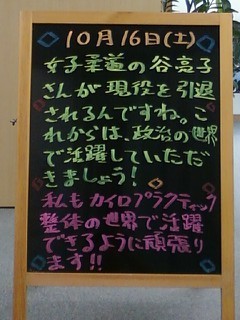 10月16日(土)
女子柔道の谷亮子
さんが現役を引退
されるんですね。こ
れからは、政治の世界
で活躍していただ
きましょう!
私もカイロプラクティック
整体の世界で活躍
できるように頑張り
ます!!